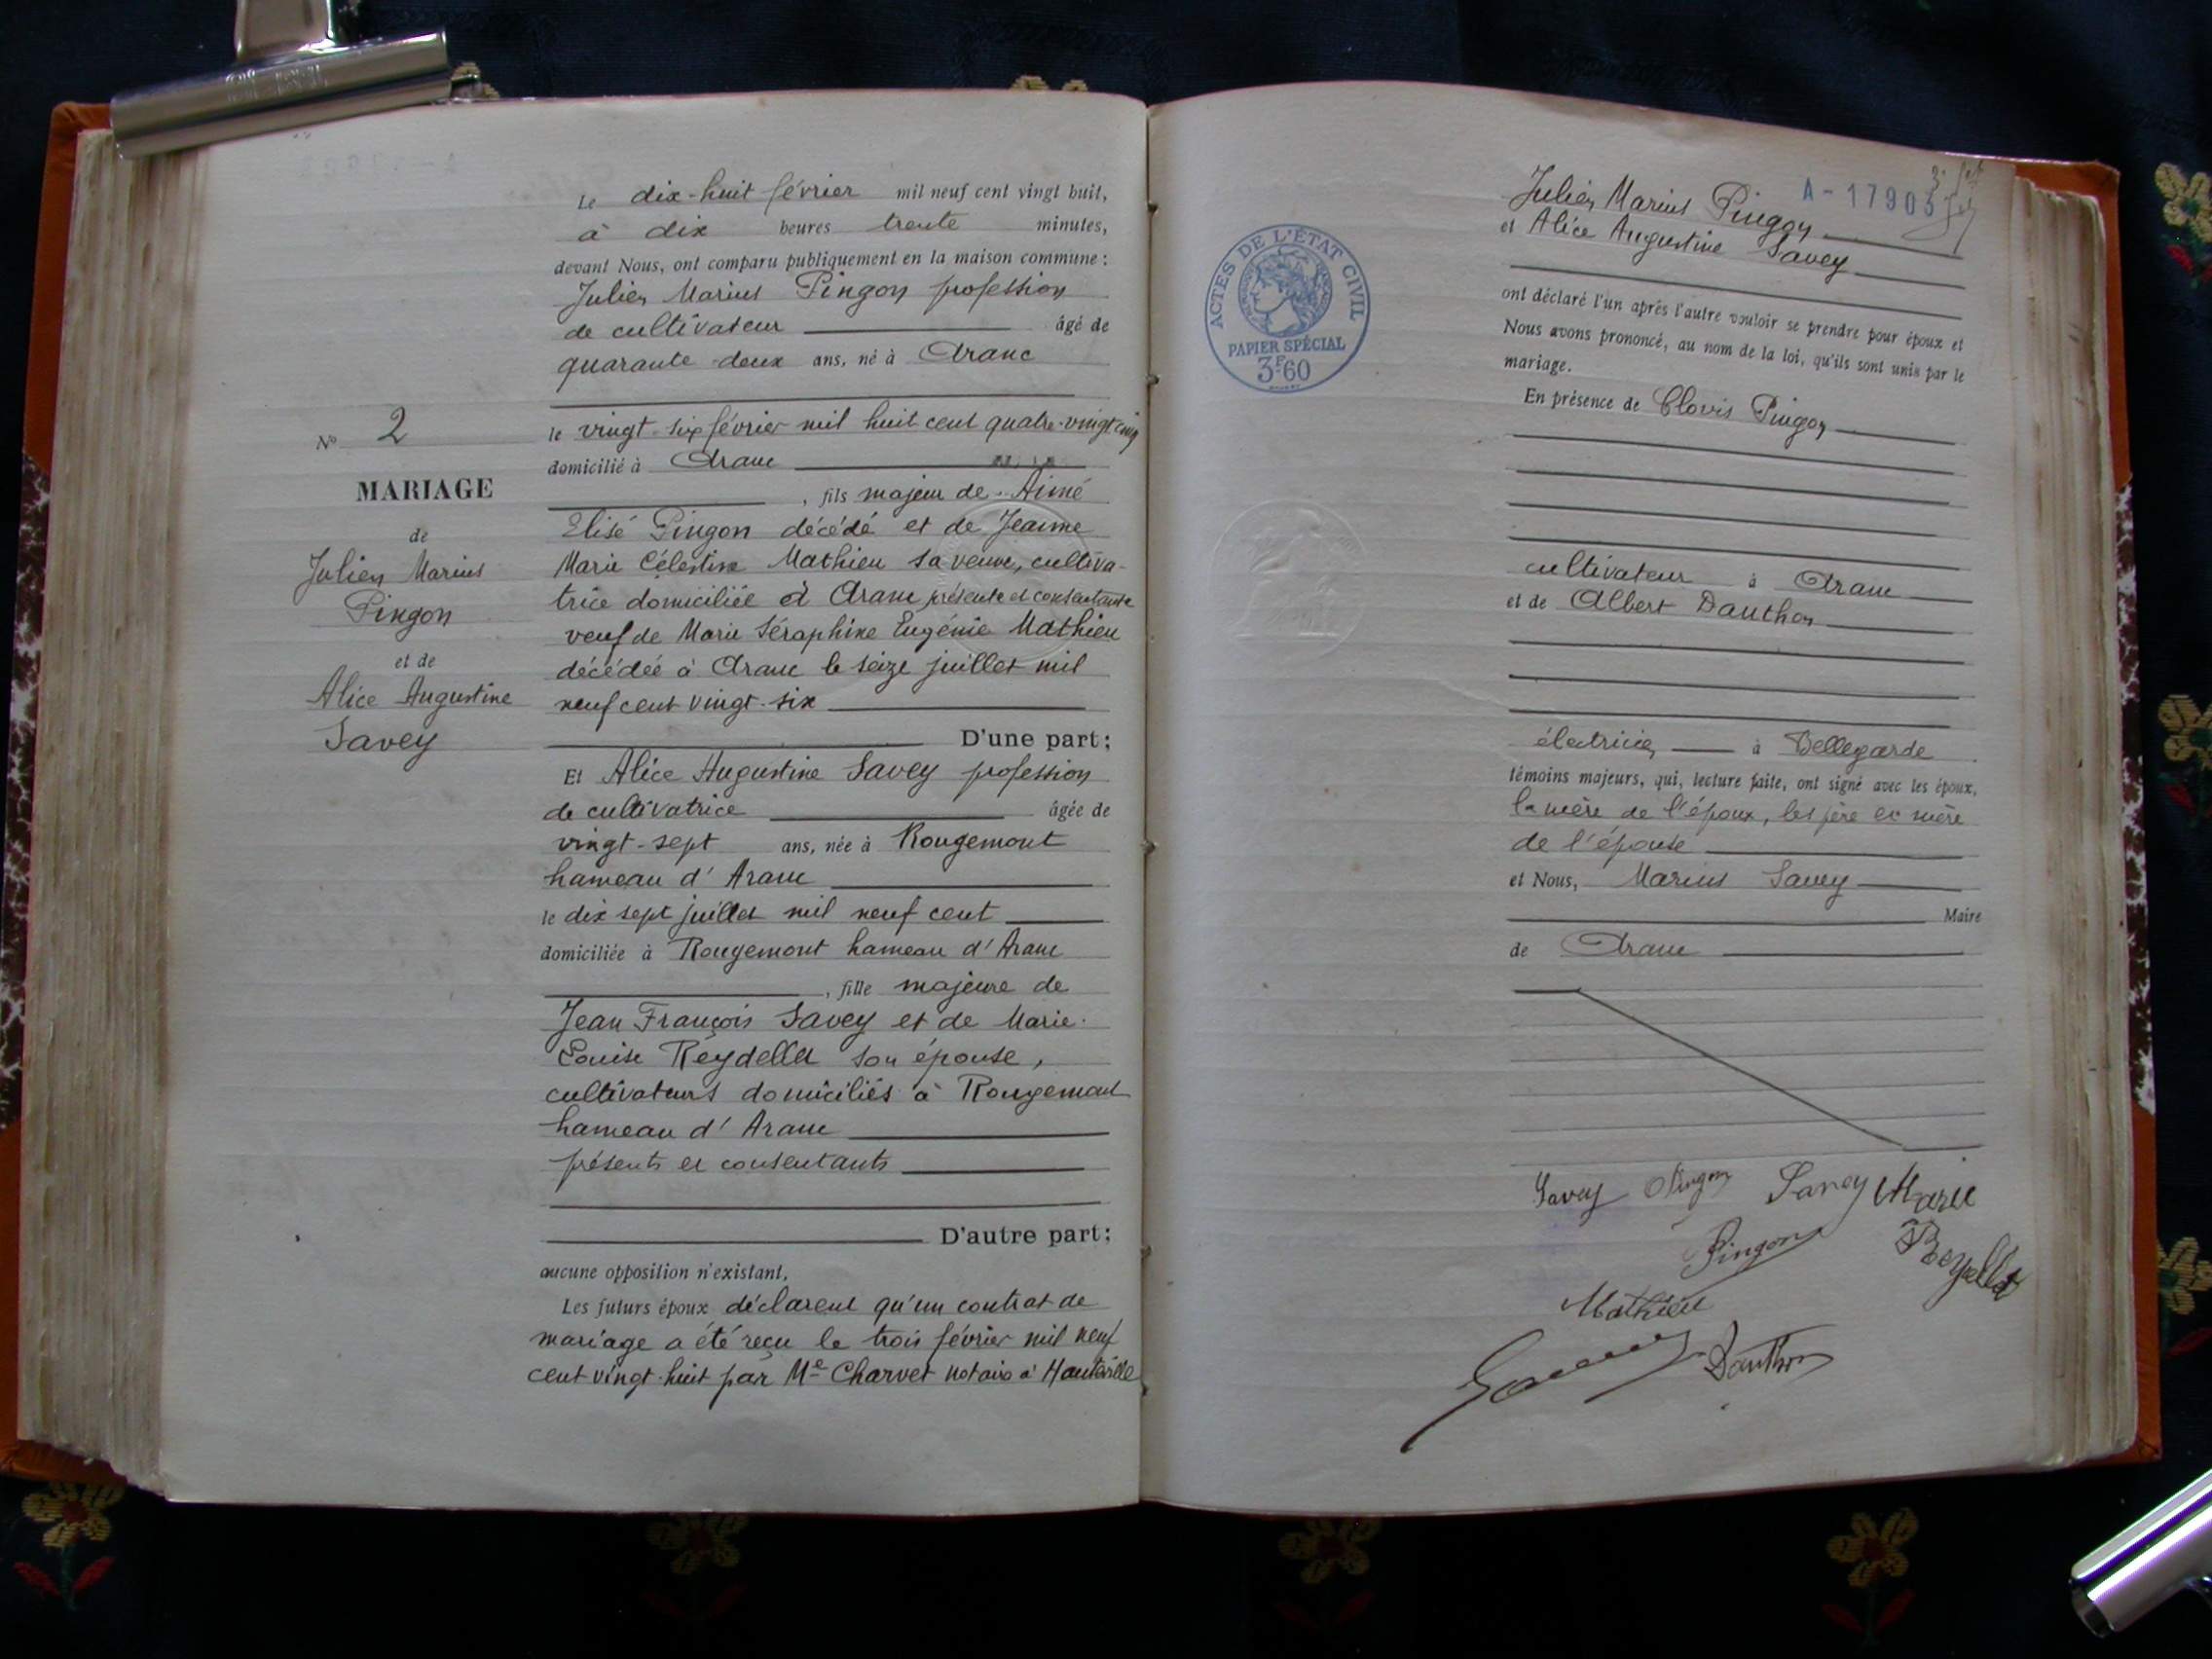 Le dix-huit février mil neuf cent vingt huit,
à dix heures trente minutes,
devant Nous, ont comparu publiquement en la maison commune :
Julien Marius Pingon profession
de cultivateur âgé de
quarante-deux ans, né à Aranc
le vingt-six février mil huit cent quatre-vingt cinq
domicilié à Aranc
, fils majeur de Aimé
Elisé Pingon décédé et de Jeanne
Marie Célestine Mathieu sa veuve, cultiva-
trice domiciliée à Aranc présente et consentante
veuf de Marie Séraphine Eugénie Mathieu
décédée à Aranc le seize juillet mil
neuf cent vingt-six
D'une part ;
Et Alice Augustine Savey profession
de cultivatrice âgée de
vingt-sept ans, née à Rougemont
hameau d'Aranc
le dix sept juillet mil neuf cent
domiciliée à Rougemont hameau d'Aranc
, fille majeure de
Jean François Savey et de Marie-
Louise Reydellet son épouse,
cultivateurs domiciliés à Rougemont
hameau d'Aranc
présents et consentants
D'autre part ;
aucune opposition n'existant,
Les futurs époux déclarent qu'un contrat de
mariage a été reçu le trois février mil neuf
cent vingt-huit par Me Charvet notaire à Hauteville
N° 2
MARIAGE
de
Julien Marius
Pingon
et de
Alice Augustine
Savey
A-17903
Julien Marius Pingon
et Alice Augustine Savey
ont déclaré l'un après l'autre vouloir se prendre pour époux et
Nous avons prononcé, au nom de la loi, qu'ils sont unis par le
mariage.
En présence de Clovis Pingon
cultivateur à Aranc
et de Albert Dauthon
électricien à Bellegarde
témoins majeurs, qui, lecture faite, ont signé avec les époux,
la mère de l'époux, les père et mère
de l'épouse
et Nous, Marius Savey
Maire
de Aranc
Savey Pingon Savey Marie
Pingon Reydellet
Mathieu
Savey Dauthon
ACTES DE L'ÉTAT CIVIL
PAPIER SPÉCIAL
3F60